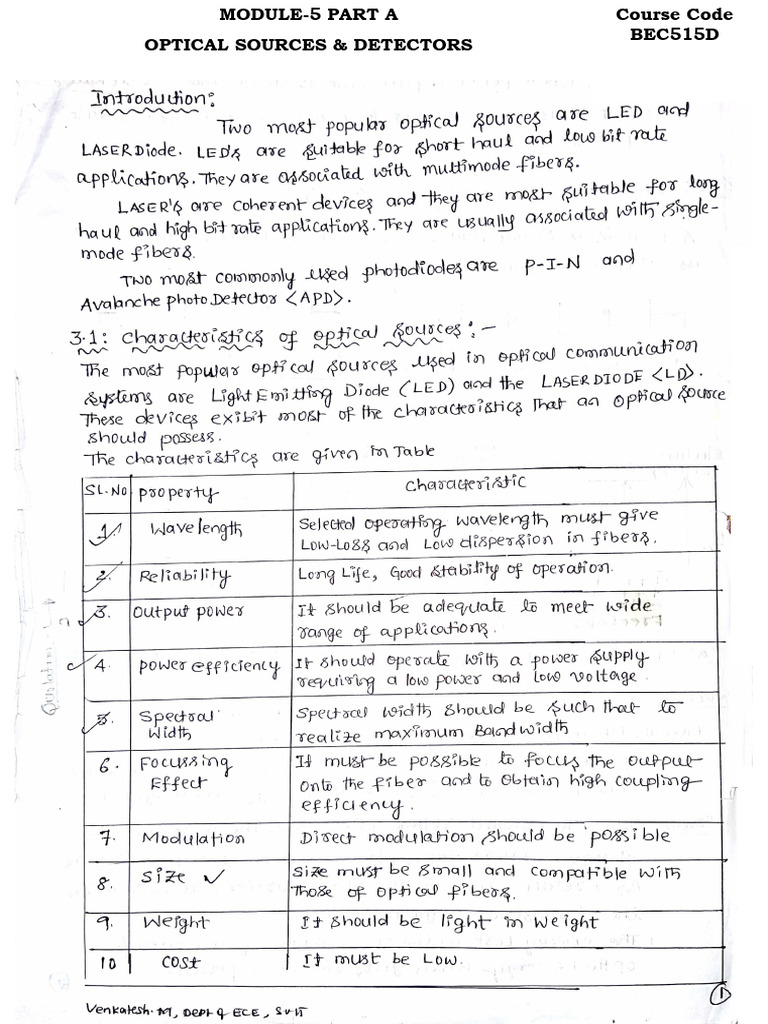 MODULE-5 PART A
Course Code
BEC515D
OPTICAL SOURCES & DETECTORS
Introduction:
Two most popular optical sources are LED and
LASER Diode. LED's are suitable for short haul and low bit rate
applications. They are associated with multimode fibers.
LASER's are coherent devices and they are most suitable for long
haul and high bit rate applications. They are usually associated with single-
mode fibers.
Two most commonly used photodiodes are P-I-N and
Avalanche photo Detector <APD>.
3.1: characteristics of optical sources:-
The most popular optical sources used in optical communication
systems are Light Emitting Diode (LED) and the LASER DIODE <LD>.
These devices exibit most of the characteristics that an optical source
should possess.
The characteristics are given in Table
SL.No property characteristic
1. Wavelength Selected operating wavelength must give
Low-Loss and Low dispersion in fibers.
2. Reliability Long Life, Good stability of operation.
3. Output power It should be adequate to meet wide
range of applications.
4. power efficiency It should operate with a power supply
requiring a low power and low voltage.
5. Spectral Width Spectral width should be such that to
realize maximum Bandwidth
6. Focussing Effect It must be possible to focus the output
onto the fiber and to obtain high coupling
efficiency.
7. Modulation Direct modulation should be possible
8. Size Size must be small and compatible with
those of optical fibers.
9. Weight It should be light in weight
10 cost It must be Low.
1
Venkatesh.M, Dept of ECE, SVIT